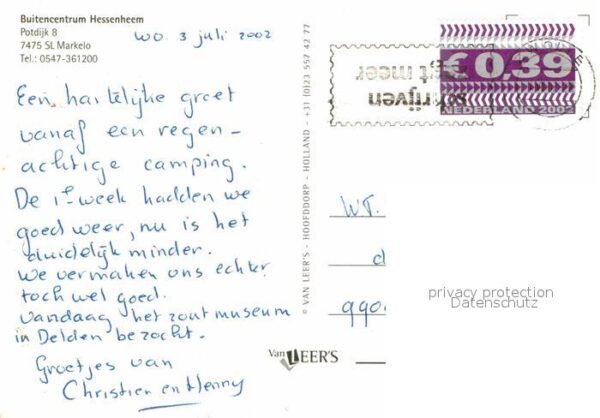 Buitencentrum Hessenheem
Potdijk 8
7475 SL Markelo
Tel.: 0547-361200
wo 3 juli 2002
Een hartelijke groet
vanaf een regen-
achtige camping.
De 1e week hadden we
goed weer, nu is het
duidelijk minder.
We vermaken ons echter
toch wel goed.
Vandaag het zoutmuseum
in Delden bezocht.
Groetjes van
Christien en Henny
© VAN LEER'S - HOOFDDORP - HOLLAND - +31 (0)23 557 42 77
Van LEER'S
schrijven
zegt meer
€ 0,39
NEDERLAND 2002
WF.
d
990
privacy protection
Datenschutz